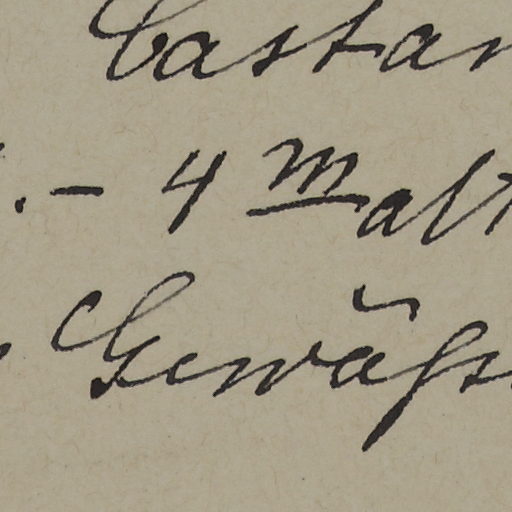 Castan
.– 4 m alt
Gewäs